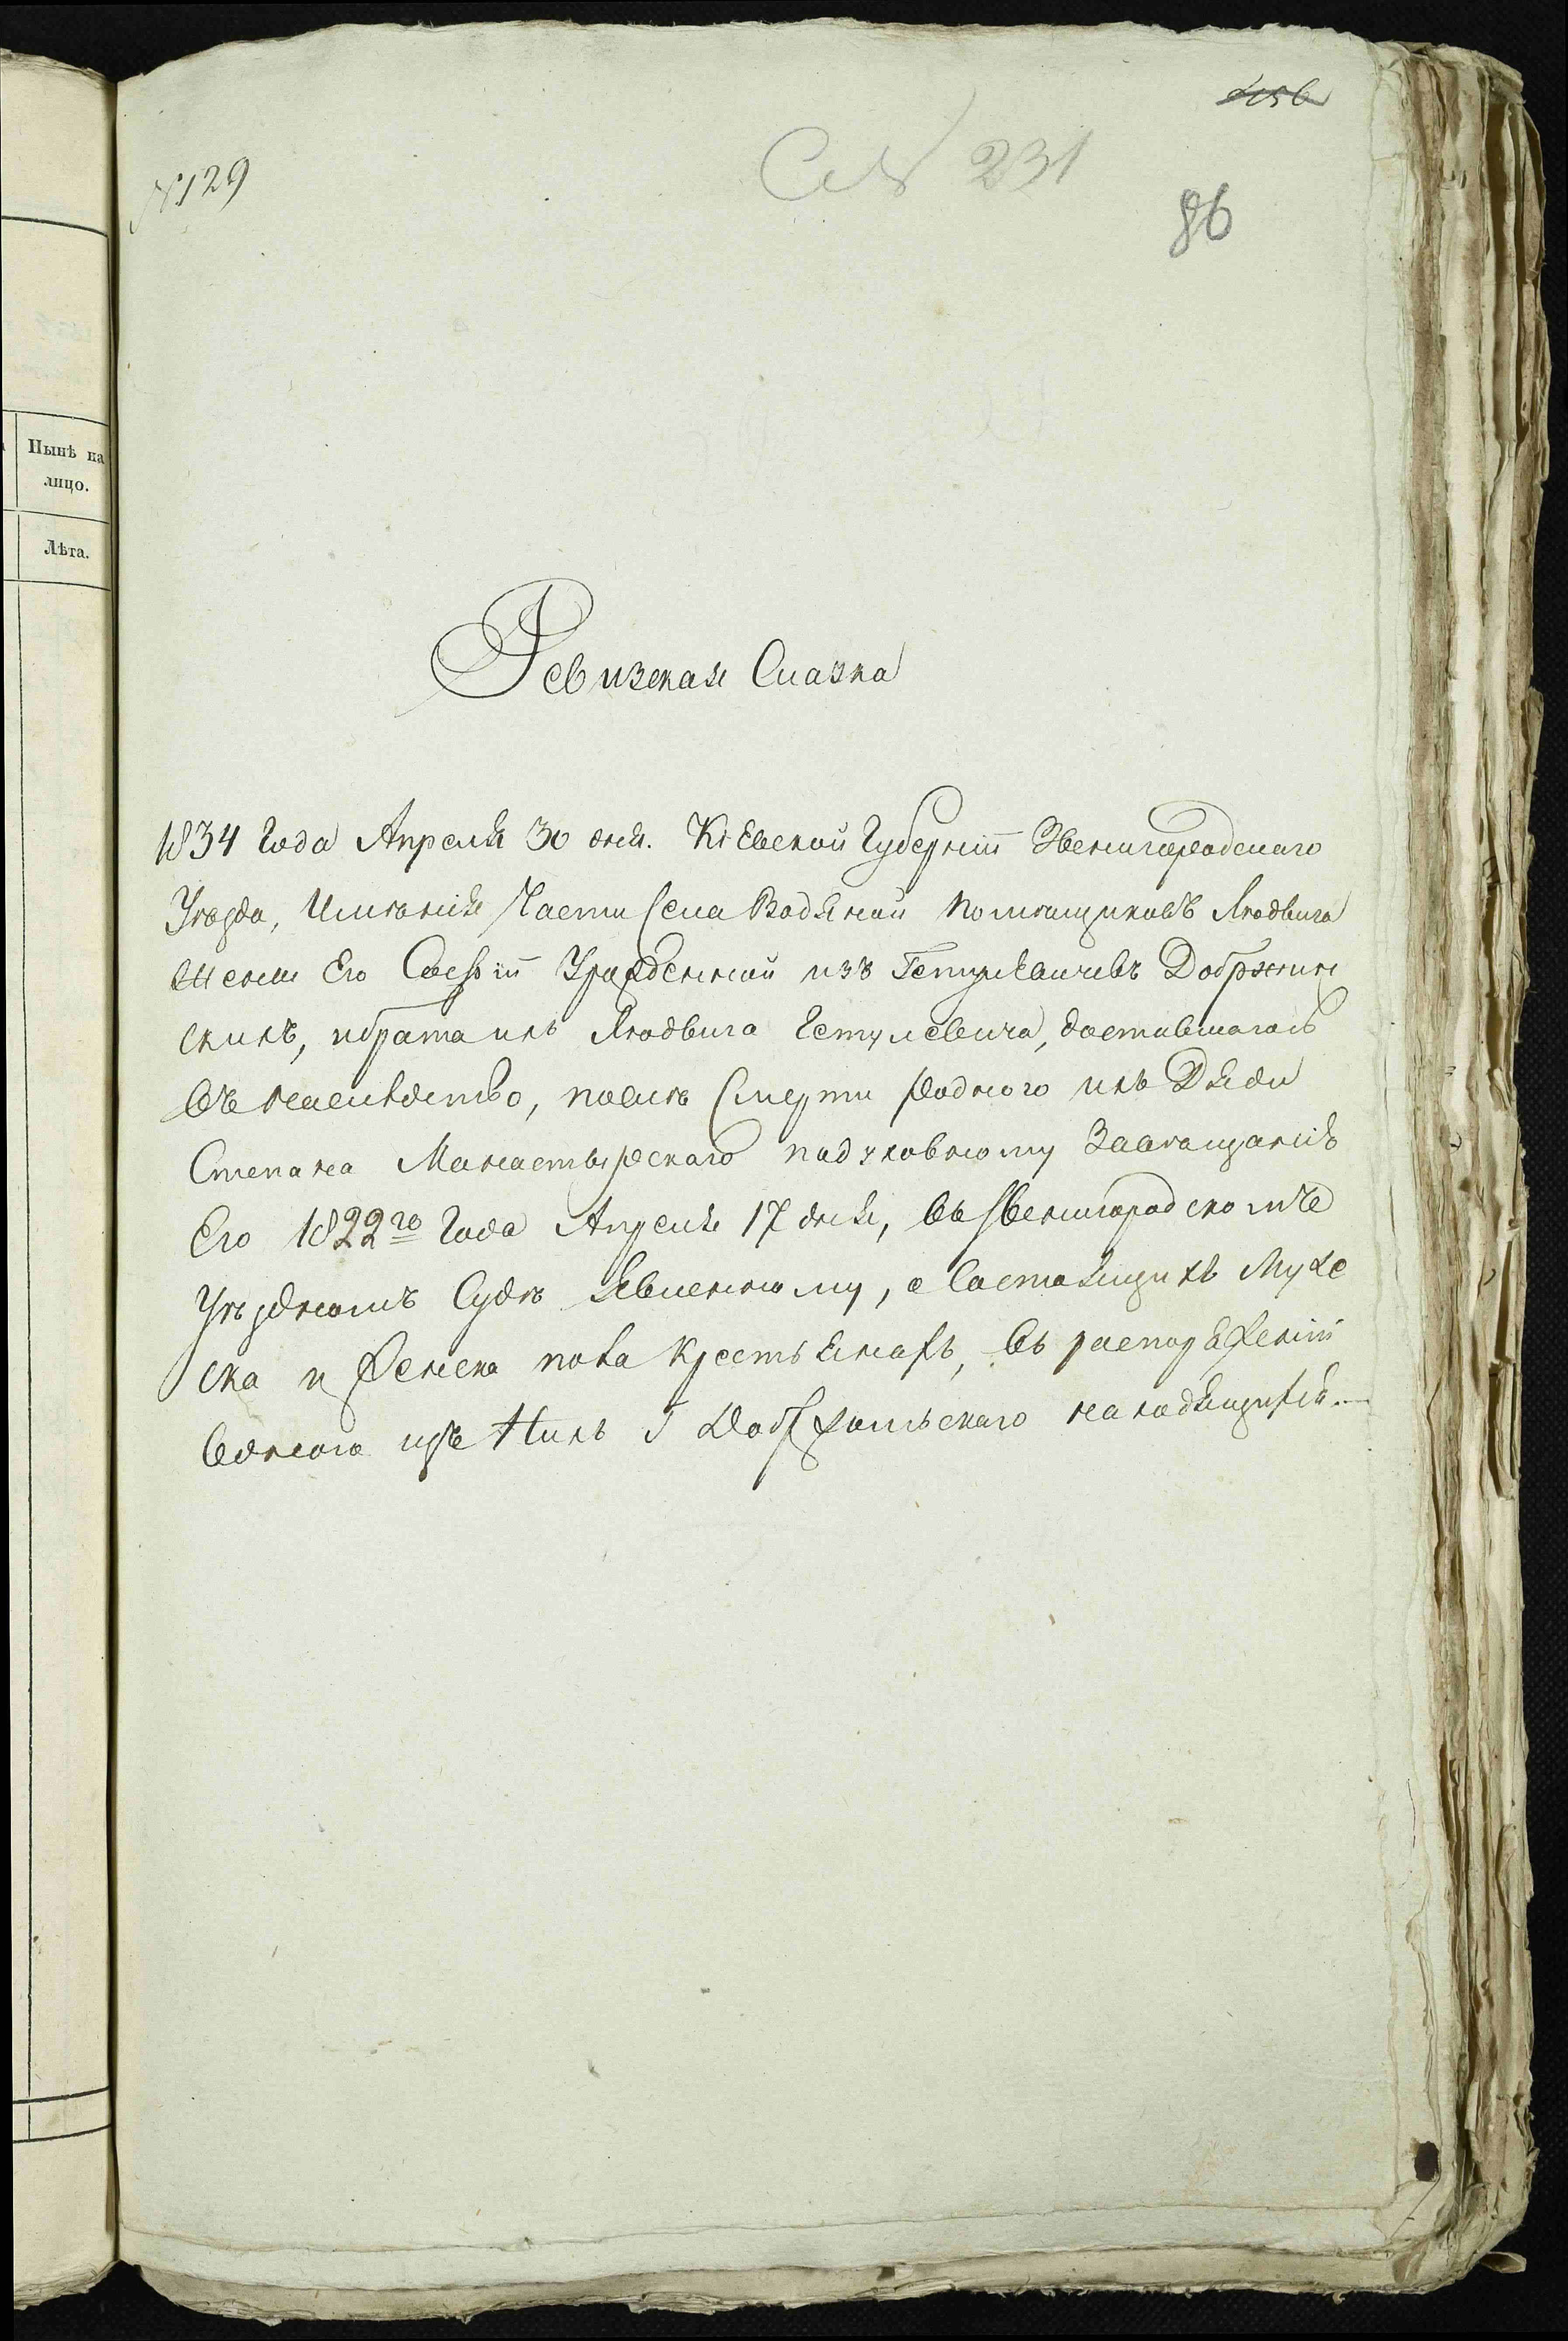 № 129
231
86
Нынѣ на
лицо.
Лѣта.
Ревизская Сказка
1834 Года Апреля 30 дня. Кіевской Губерніи Звенигородскаго
Уѣзда, Имѣнія Части Села Водяной Помѣщиковъ Людвига
Жены Его Софіи Урожденной изъ Гетулевичевъ Добржин
скихъ, ибрата ихъ Людвига Гетулевича, доставшагось
Въ наслѣдство, послѣ Смерти родного ихъ Дяди
Степана Манастырскаго подуховному Завѣщанію
Его 1822го Года Апреля 17 дня, въ Звенигородскомъ
Уѣздномъ Судѣ Явленному, о Состоящихъ Муже
ска и Женска пола Крестьянахъ, Въ распоряженіи
Одного изъ Нихъ Г Добржанскаго находящихся.